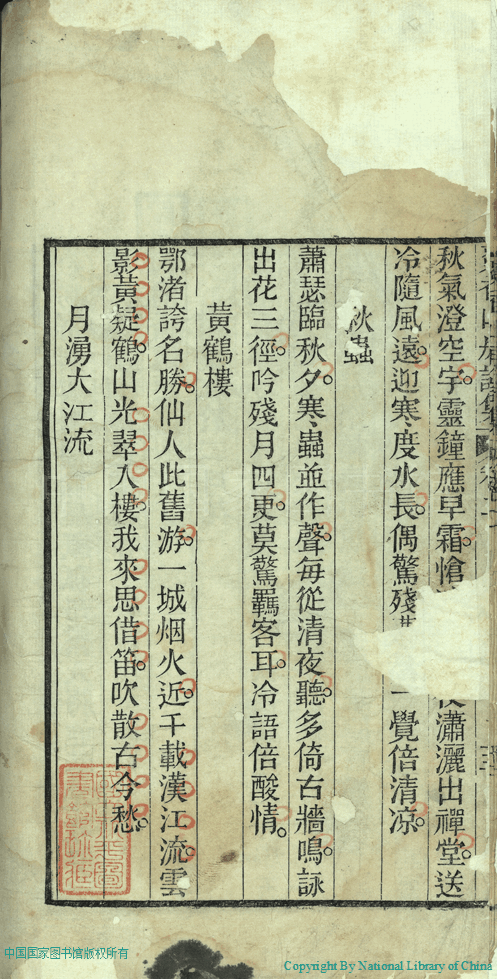 秋氣澄空宇靈鐘應早霜愴
瀟灑出禪堂送
冷隨風遠迎寒度水長偶驚殘
一覺倍清凉
秋蟲
蕭瑟臨秋夕寒蟲並作聲每從清夜聽多倚古牆鳴詠
出花三徑吟殘月四更莫驚羈客耳冷語倍酸情
黃鶴樓
鄂渚誇名勝仙人此舊游一城烟火近千載漢江流雲
影黃疑鶴山光翠入樓我來思借笛吹散古今愁
月湧大江流
中国国家图书馆版权所有
Copyright By National Library of China